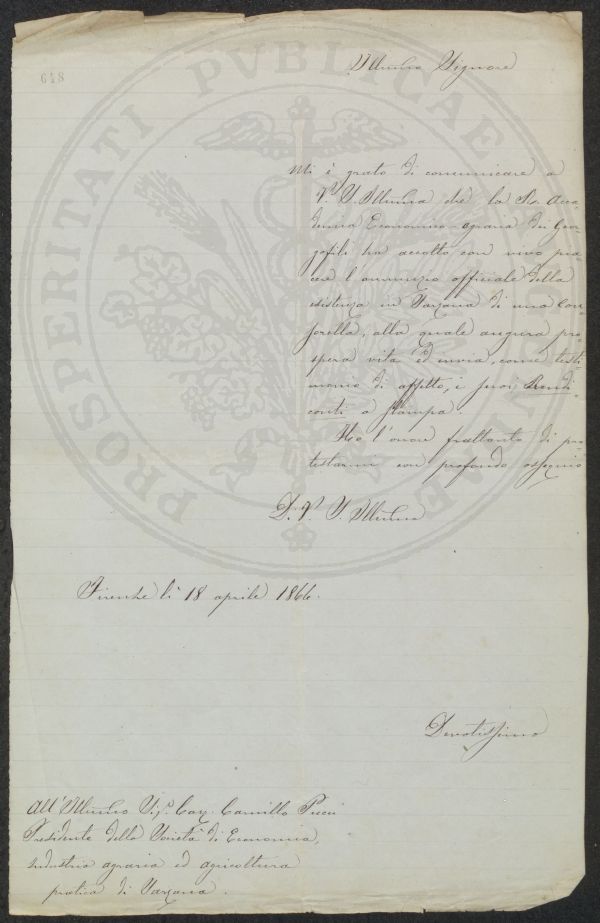 648
PROSPERITATI PVBLICAE
Illmo Signore
Mi è grato di comunicare a
V. S. Illma che la R. Acca-
demia Economico-agraria dei Geor-
gofili ha accolto con vivo pia-
cere l'annunzio officiale della
esistenza in Sarzana di una Con-
sorella, alla quale augura pro-
spera vita ed invia, come testi-
monio di affetto, i suoi Rendi-
conti a stampa.
Ho l'onore frattanto di pro-
testarmi con profondo ossequio
D. V. S. Illma
Firenze li 18 aprile 1866.
Devotissimo
All'Illmo Sigr. Cav. Camillo Picci
Presidente della Società di Economia,
industria agraria ed agricoltura
pratica di Sarzana.